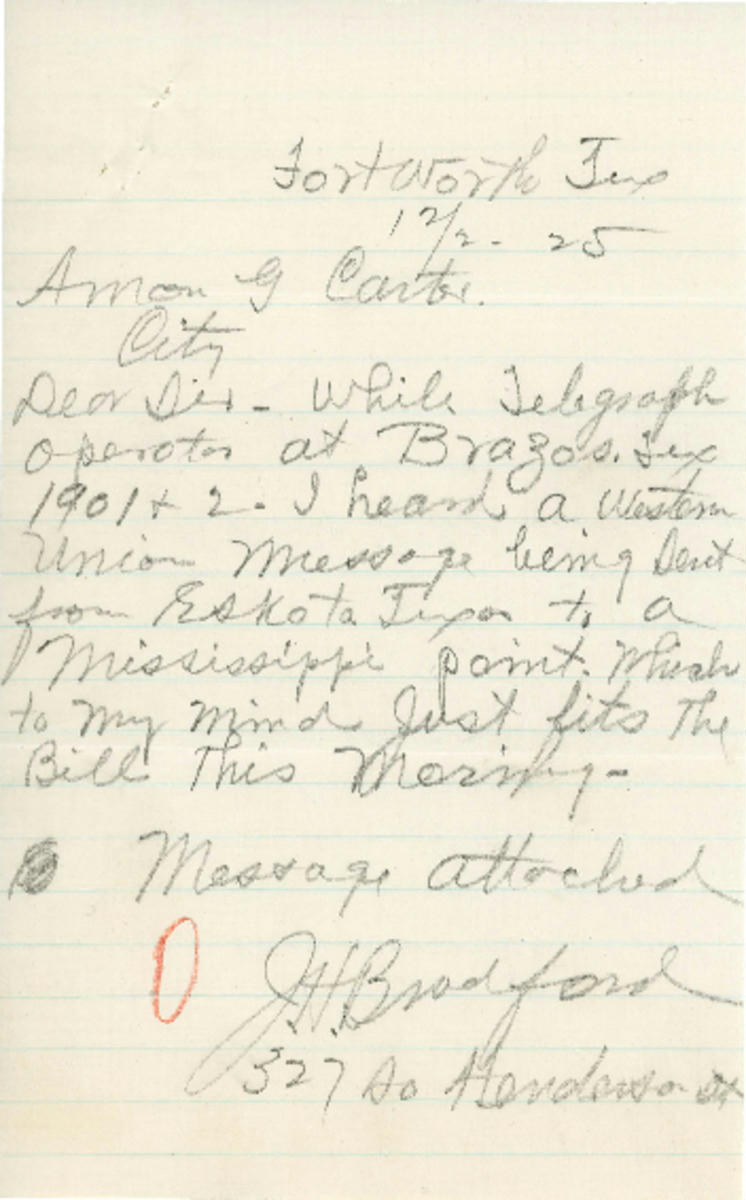 Fort Worth Tex
12/2 - 25
Amon G Carter.
City
Dear Sir - While Telegraph
operator at Brazos. Tex
1901 + 2 - I heard a Western
Union Message being Sent
from Eskota Texas to a
Mississippi point. Which
to My Mind Just fits The
Bill This Morning -
Message attached
J.H. Bradford
327 So Henderson St